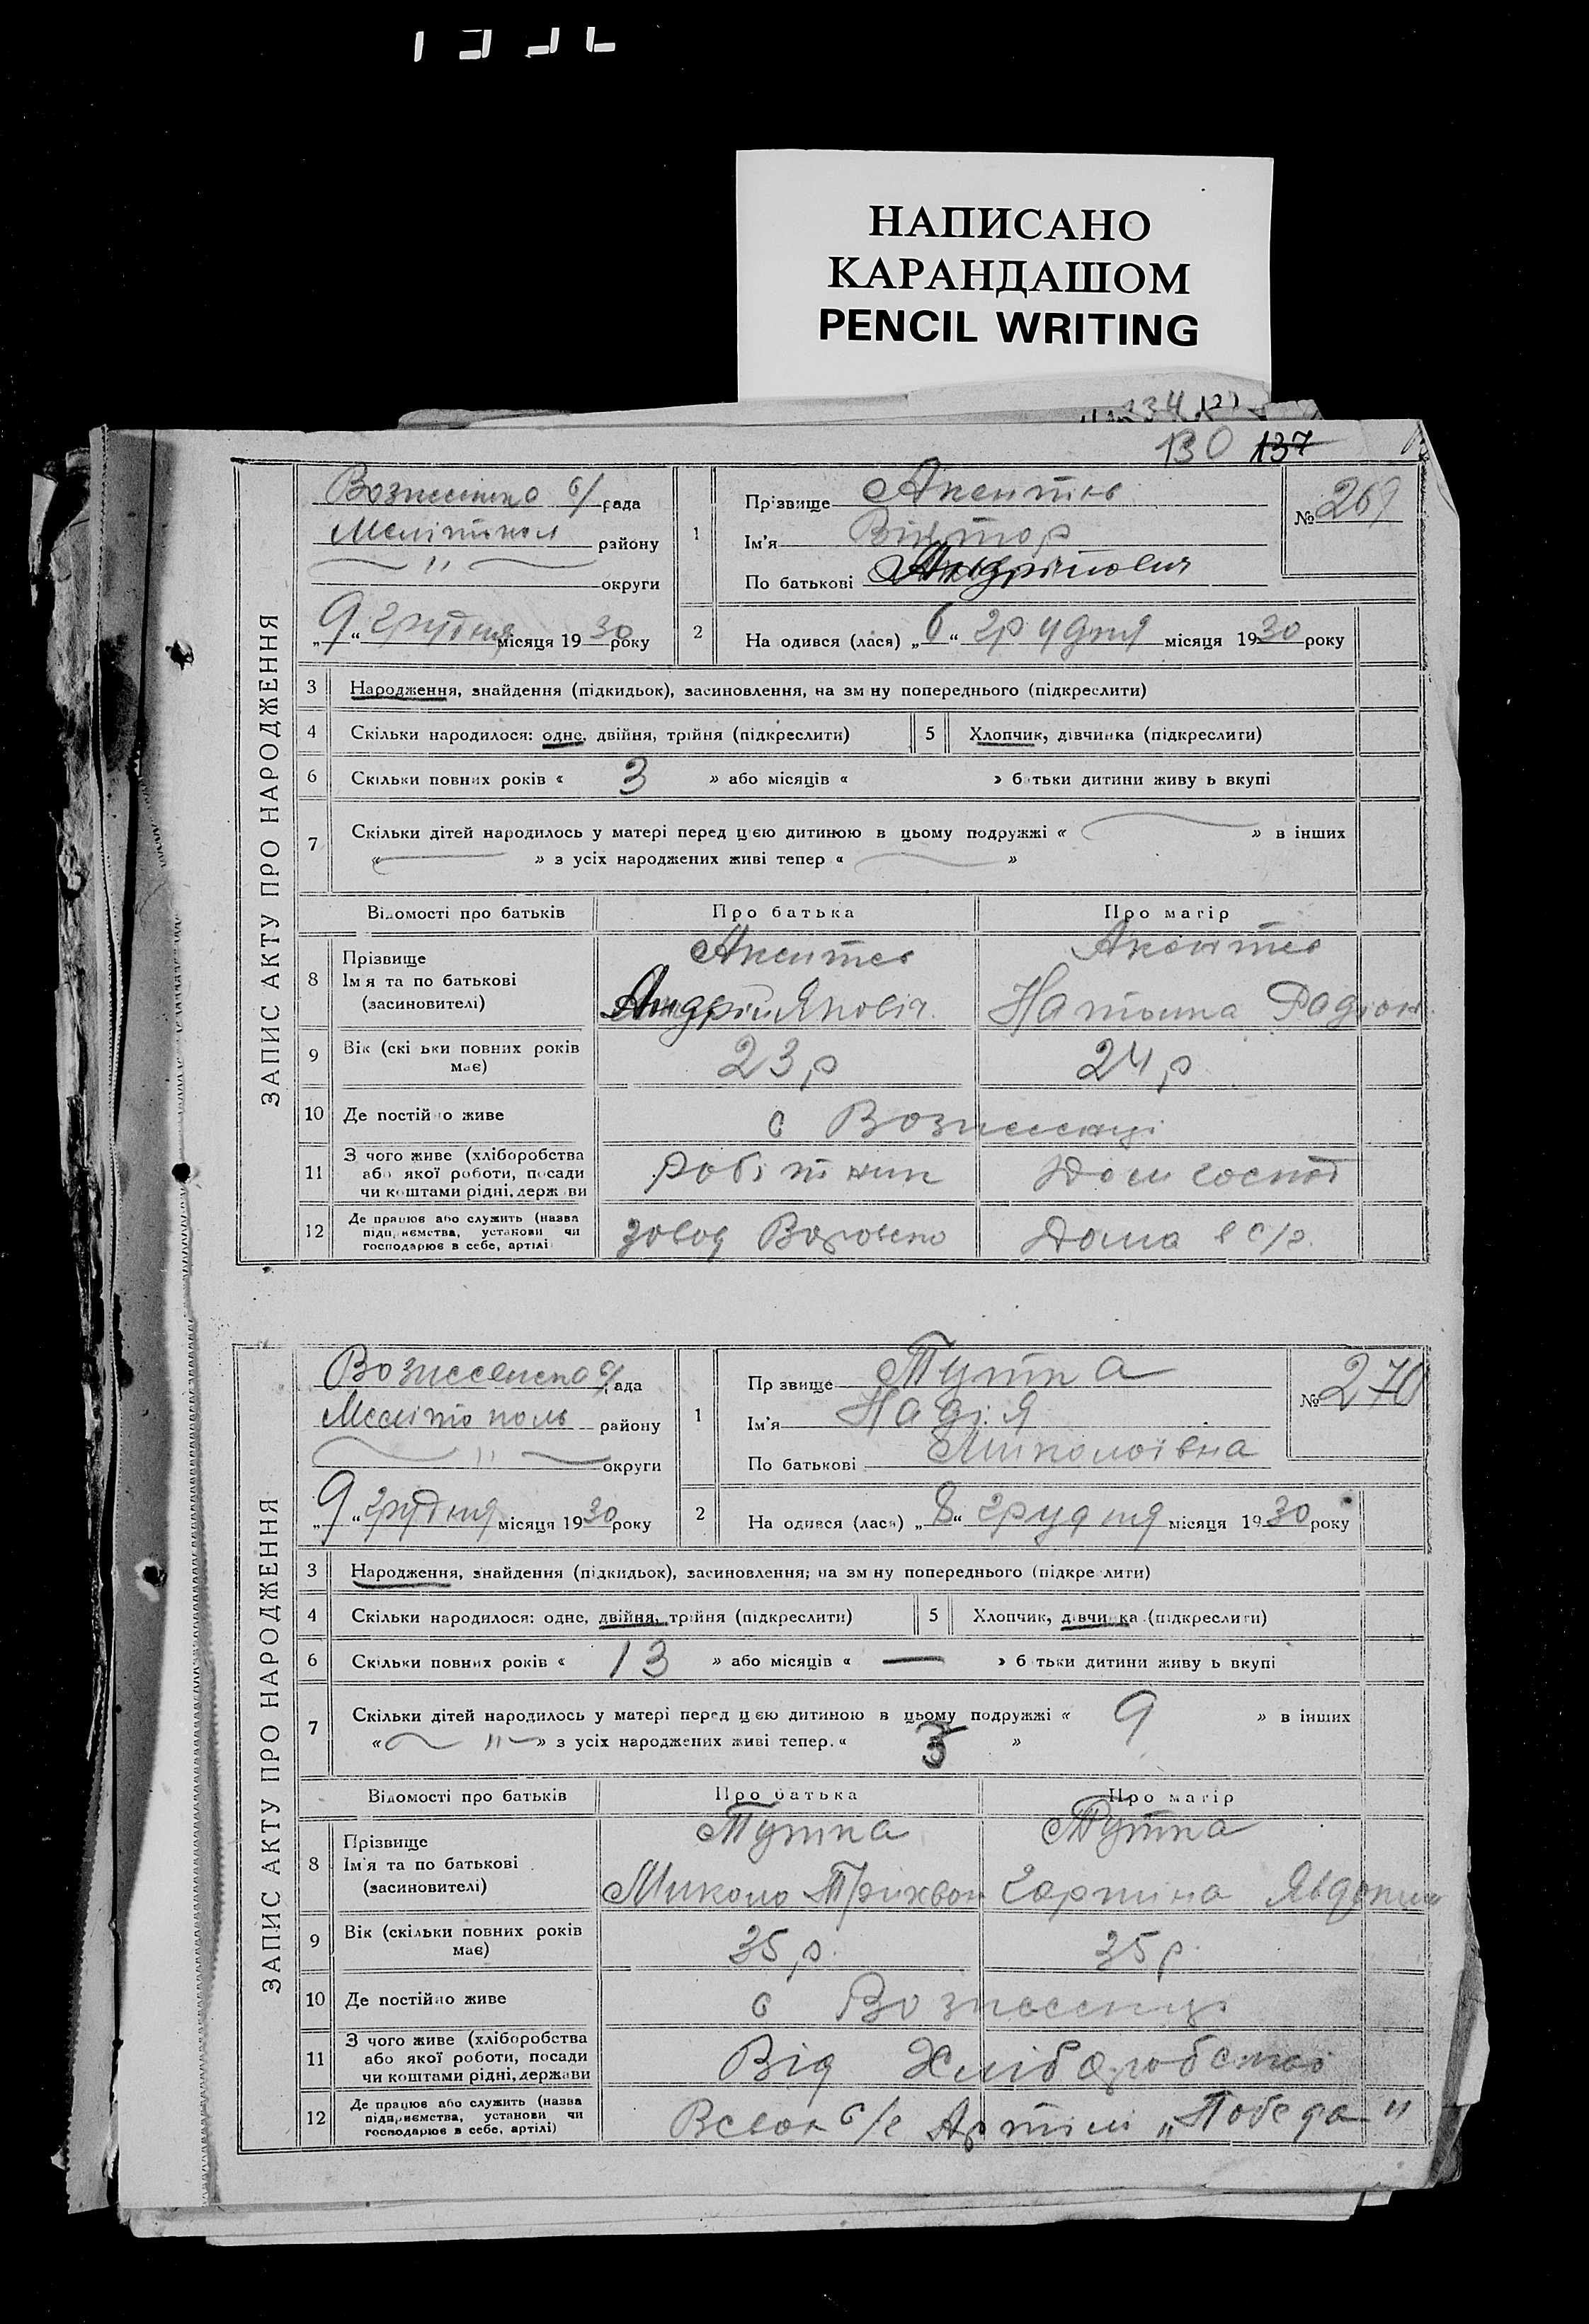 НАПИСАНО
КАРАНДАШОМ
PENCIL WRITING
130 137
ЗАПИС АКТУ ПРО НАРОДЖЕННЯ
Вознесенка с/рада
Мелітопол району
— " — округи
„9“ грудня місяця 1930 року
1
Прізвище Аксентєв
Ім'я Віктор
По батькові Андрійович
№ 269
2 На одився (лася) „6“ грудня місяця 1930 року
3 Народження, знайдення (підкидьок), засиновлення, на зм ну попереднього (підкреслити)
4 Скільки народилося: одне, двійня, трійня (підкреслити) 5 Хлопчик, дівчинка (підкреслити)
6 Скільки повних років « 3 » або місяців « » б тьки дитини живу ь вкупі
7 Скільки дітей народилось у матері перед цією дитиною в цьому подружжі « — » в інших
« — » з усіх народжених живі тепер « — »
Відомості про батьків Про батька Про матір
8 Прізвище Ім'я та по батькові (засиновителі)
Аксентєв Аксентєв
Андрій Якович. Натьлка Радіон
9 Вік (скі ьки повних років має) 23 р 24 р
10 Де постій о живе с Вознесенці
11 З чого живе (хліборобства або якої роботи, посади чи коштами рідні, держ ви Робітник Дом господ
12 Де працює або служить (назва підп иємства, установи чи господарює в себе, артілі завод Воровско Дома в с/г.
ЗАПИС АКТУ ПРО НАРОДЖЕННЯ
Вознесенка с/рада
Мелітополь району
— " — округи
„9“ грудня місяця 1930 року
1
Пр звище Тутка
Ім'я Надія
По батькові Миколоївна
№ 270
2 На одився (лася) „8“ грудня місяця 1930 року
3 Народження, знайдення (підкидьок), засиновлення; на зм ну попереднього (підкре лити)
4 Скільки народилося: одне, двійня, трійня (підкреслити) 5 Хлопчик, дівчи ка (підкреслити)
6 Скільки повних років « 13 » або місяців « — » б тьки дитини живу ь вкупі
7 Скільки дітей народилось у матері перед цією дитиною в цьому подружжі « 9 » в інших
« — " — » з усіх народжених живі тепер. « 3 »
Відомості про батьків Про батька Про матір
8 Прізвище Ім'я та по батькові (засиновителі)
Тутка Тутка
Миколо Трихвон Гарпіна Явдоким
9 Вік (скільки повних років має) 35 р. 35 р.
10 Де постійно живе с Вознесенці
11 З чого живе (хліборобства або якої роботи, посади чи коштами рідні, держави Від Хліборобства
12 Де працює або служить (назва підприємства, установи чи господарює в себе, артілі) с/г Артілі „Победа"